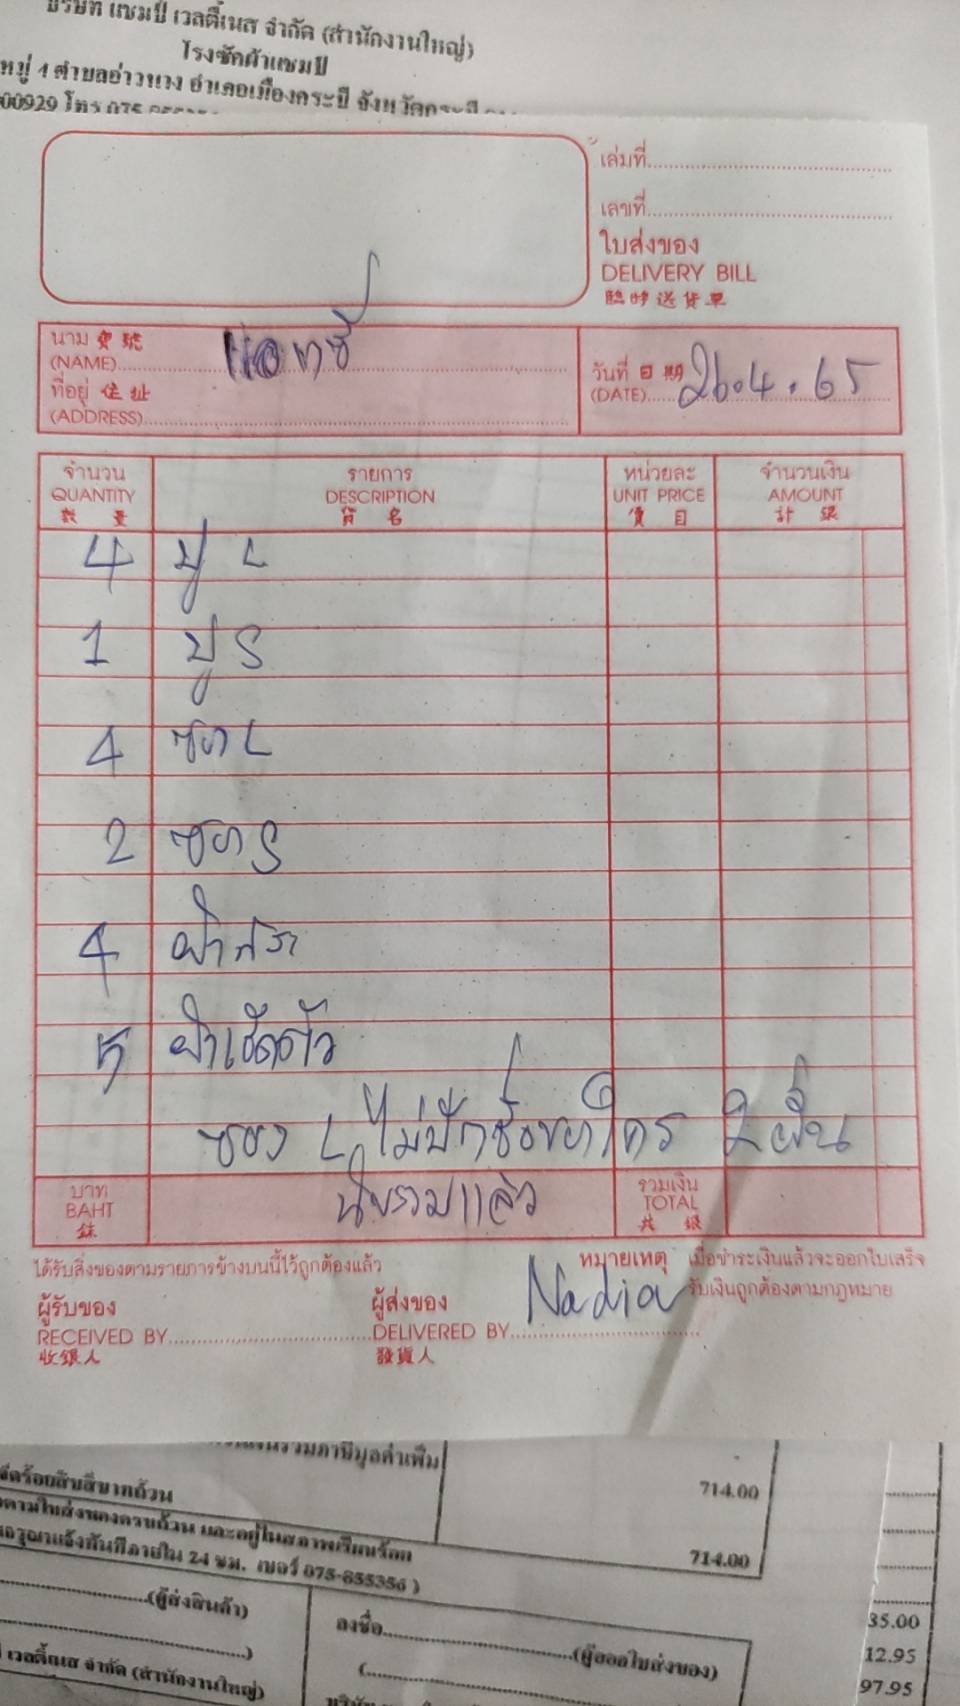 บริษัท แชมป์ เวลตี้เนส จำกัด (สำนักงานใหญ่)
โรงซักผ้าแชมป์
หมู่ 4 ตำบลอ่าวนาง อำเภอเมืองกระบี่ จังหวัดกระบี่
00929 โทร 075
เล่มที่
เลขที่
ใบส่งของ
DELIVERY BILL
臨時送貨單
นาม 寶號
(NAME)
ที่อยู่ 住址
(ADDRESS)
วันที่ 日期
(DATE) 26.4.65
จำนวน รายการ หน่วยละ จำนวนเงิน
QUANTITY DESCRIPTION UNIT PRICE AMOUNT
數量 貨名 價目 計銀
4 ปู L
1 ปู S
4 ซอง L
2 ซอง S
4 ผ้าสระ
5 ผ้าเช็ดตัว
ซอง L ไม่ปักชื่อของใคร 2 ผืน
นับรวมแล้ว
บาท รวมเงิน
BAHT TOTAL
銖 共銀
ได้รับสิ่งของตามรายการข้างบนนี้ไว้ถูกต้องแล้ว
หมายเหตุ เมื่อชำระเงินแล้วจะออกใบเสร็จ
รับเงินถูกต้องตามกฎหมาย
ผู้รับของ ผู้ส่งของ
RECEIVED BY DELIVERED BY Nadia
收銀人 發貨人
รวมภาษีมูลค่าเพิ่ม
714.00
ร้อยสิบสี่บาทถ้วน
714.00
ตามใบส่งของครบถ้วน และอยู่ในสภาพเรียบร้อย
กรุณาแจ้งทันทีภายใน 24 ชม. เบอร์ 075-855356 )
(ผู้ส่งสินค้า)
ลงชื่อ (ผู้ออกใบส่งของ)
เวลตี้เนส จำกัด (สำนักงานใหญ่)
35.00
12.95
97.95